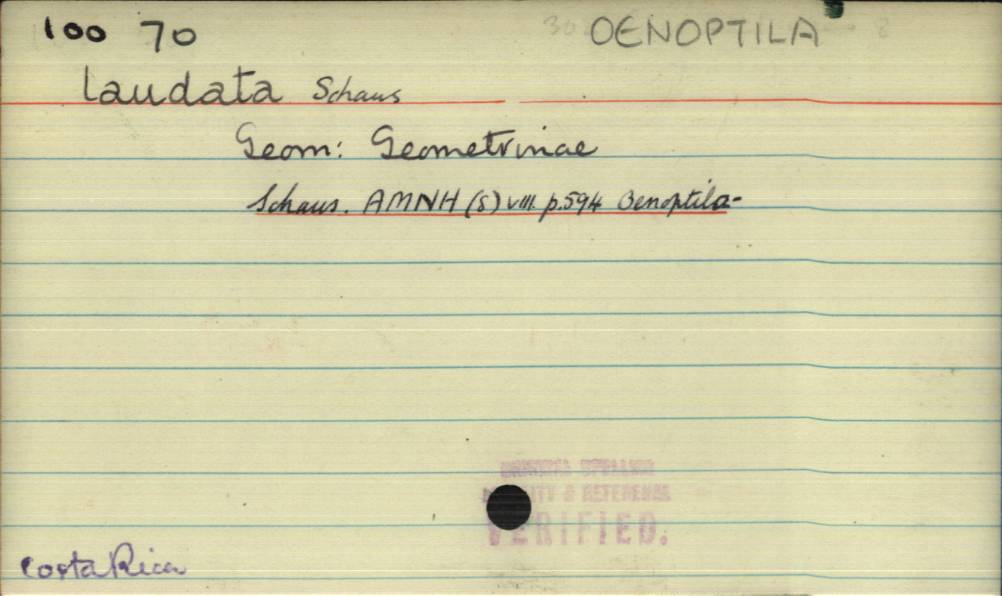 100 70 OENOPTILA
laudata Schaus
Geom: Geometrinae
Schaus. AMNH (8) VIII. p.594 Oenoptila-
ORIGINAL SPELLING
LITY & REFERENCE
VERIFIED.
Costa Rica